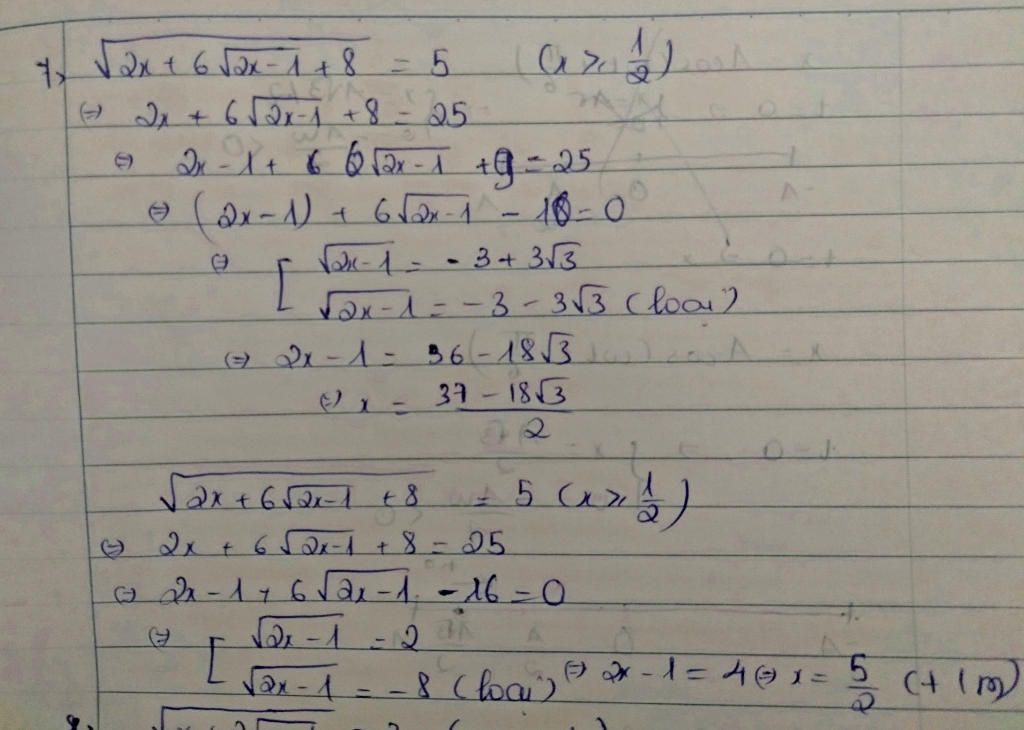 7, √(2x + 6√(2x-1) + 8) = 5 (x ≥ 1/2)
⇔ 2x + 6√(2x-1) + 8 = 25
⇔ 2x - 1 + 6 6√(2x-1) + 9 = 25
⇔ (2x - 1) + 6√(2x-1) - 18 = 0
⇔ [ √(2x-1) = -3 + 3√3
√(2x-1) = -3 - 3√3 (loại)
⇔ 2x - 1 = 36 - 18√3
⇔ x = (37 - 18√3)/2
√(2x + 6√(2x-1) + 8) = 5 (x ≥ 1/2)
⇔ 2x + 6√(2x-1) + 8 = 25
⇔ 2x - 1 + 6√(2x-1) - 16 = 0
⇔ [ √(2x-1) = 2
√(2x-1) = -8 (loại) ⇔ 2x - 1 = 4 ⇔ x = 5/2 (t/m)